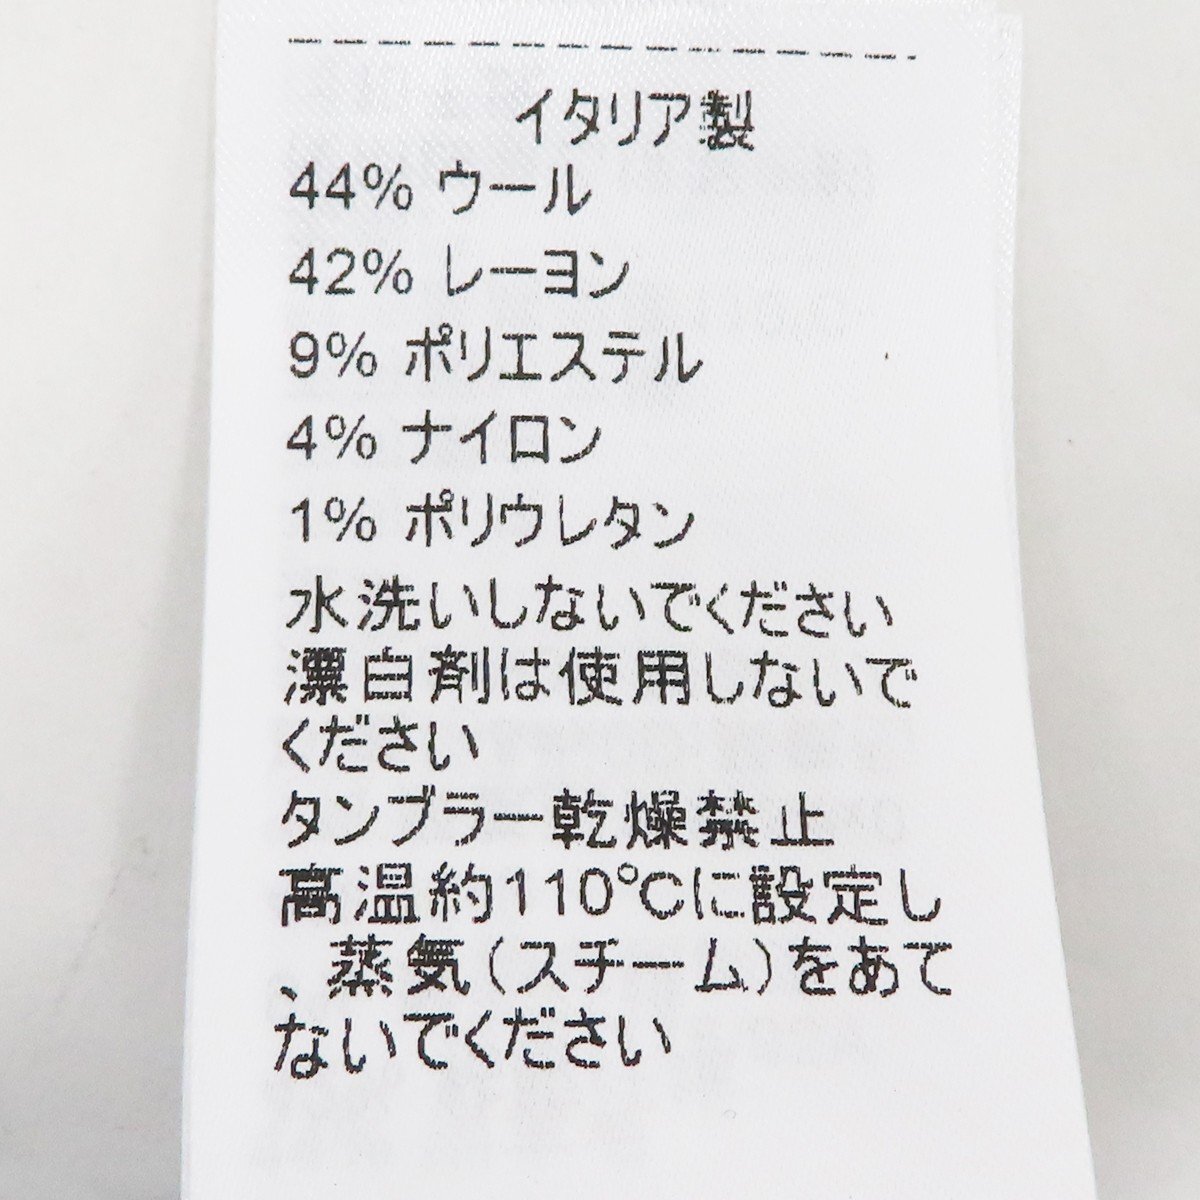 イタリア製
44% ウール
42% レーヨン
9% ポリエステル
4% ナイロン
1% ポリウレタン
水洗いしないでください
漂白剤は使用しないで
ください
タンブラー乾燥禁止
高温約110℃に設定し
、蒸気(スチーム)をあて
ないでください